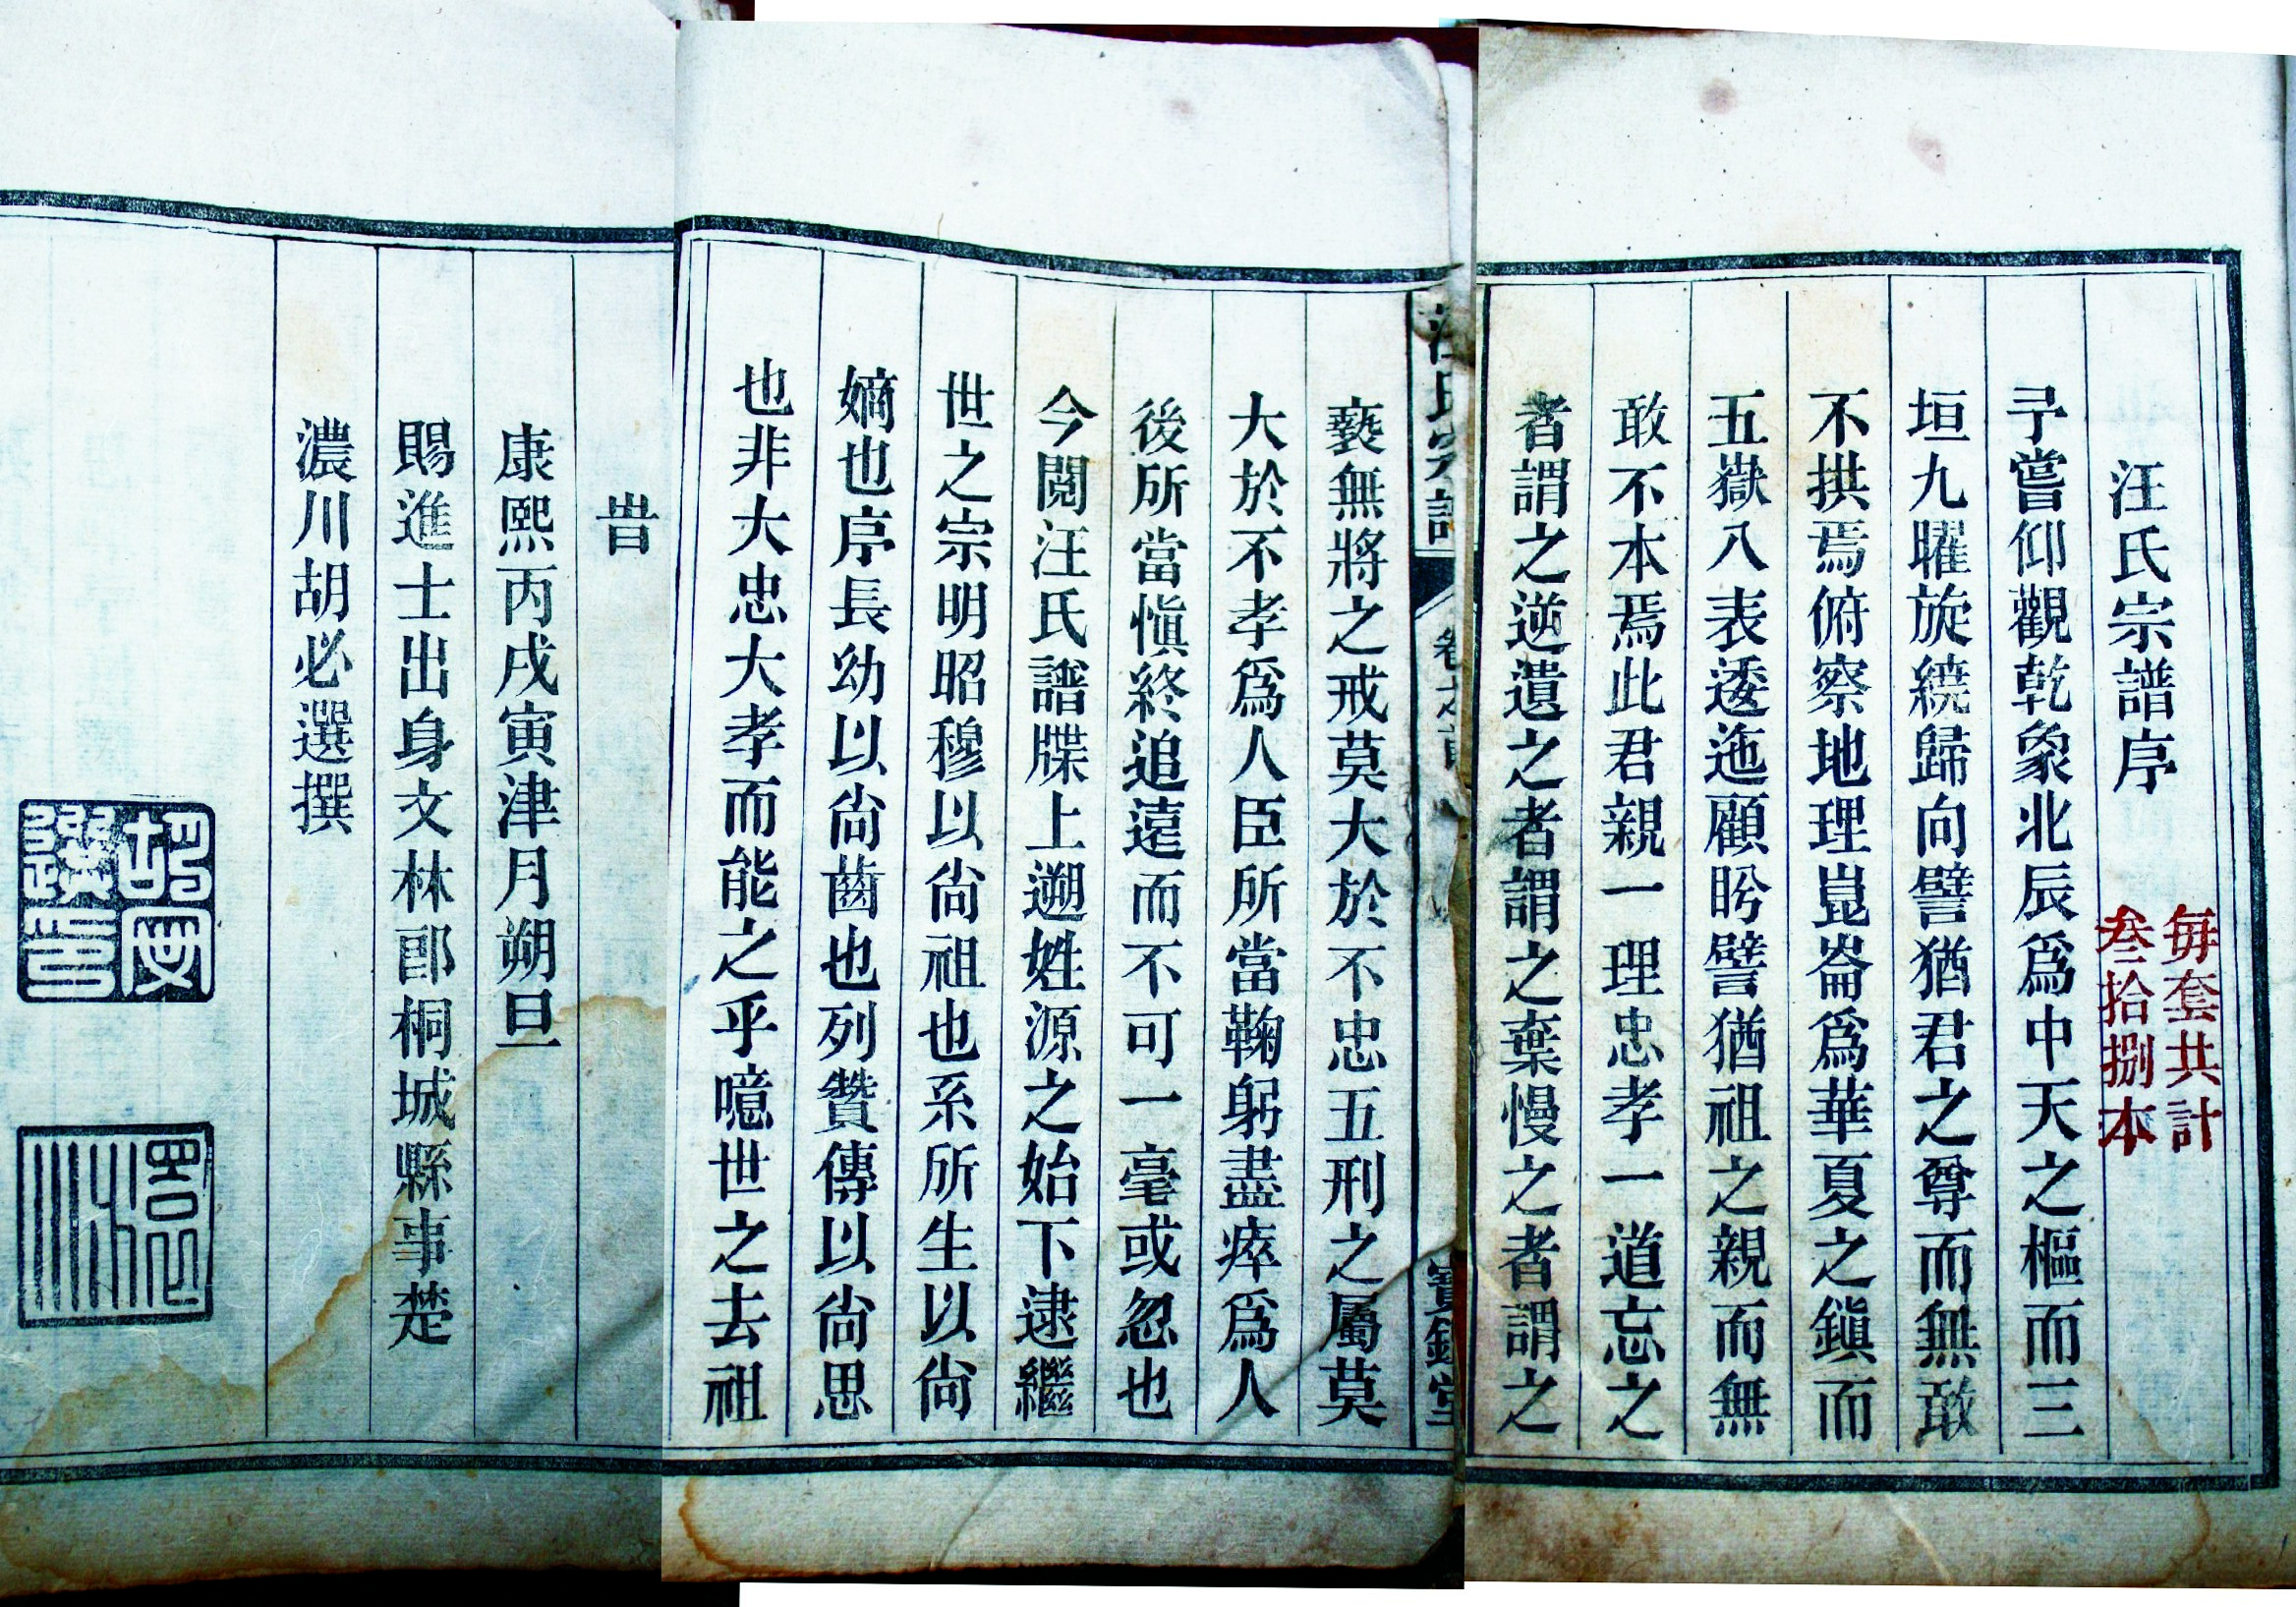 汪氏宗譜序
每套共計
叁拾捌本
予嘗仰觀乾象北辰爲中天之樞而三
垣九曜旋繞歸向譬猶君之尊而無敢
不拱焉俯察地理崑崙爲華夏之鎭而
五嶽八表逶迤顧盻譬猶祖之親而無
敢不本焉此君親一理忠孝一道忘之
者謂之逆遺之者謂之棄慢之者謂之
汪氏宗譜 卷之首 寶鏡堂
褻無將之戒莫大於不忠五刑之屬莫
大於不孝爲人臣所當鞠躬盡瘁爲人
後所當愼終追遠而不可一毫或忽也
今閱汪氏譜牒上遡姓源之始下逮繼
世之宗明昭穆以尙祖也系所生以尙
嫡也序長幼以尙齒也列贊傳以尙思
也非大忠大孝而能之乎噫世之去祖
旹
康熙丙戌寅津月朔旦
賜進士出身文林郎桐城縣事楚
濃川胡必選撰
胡必選印